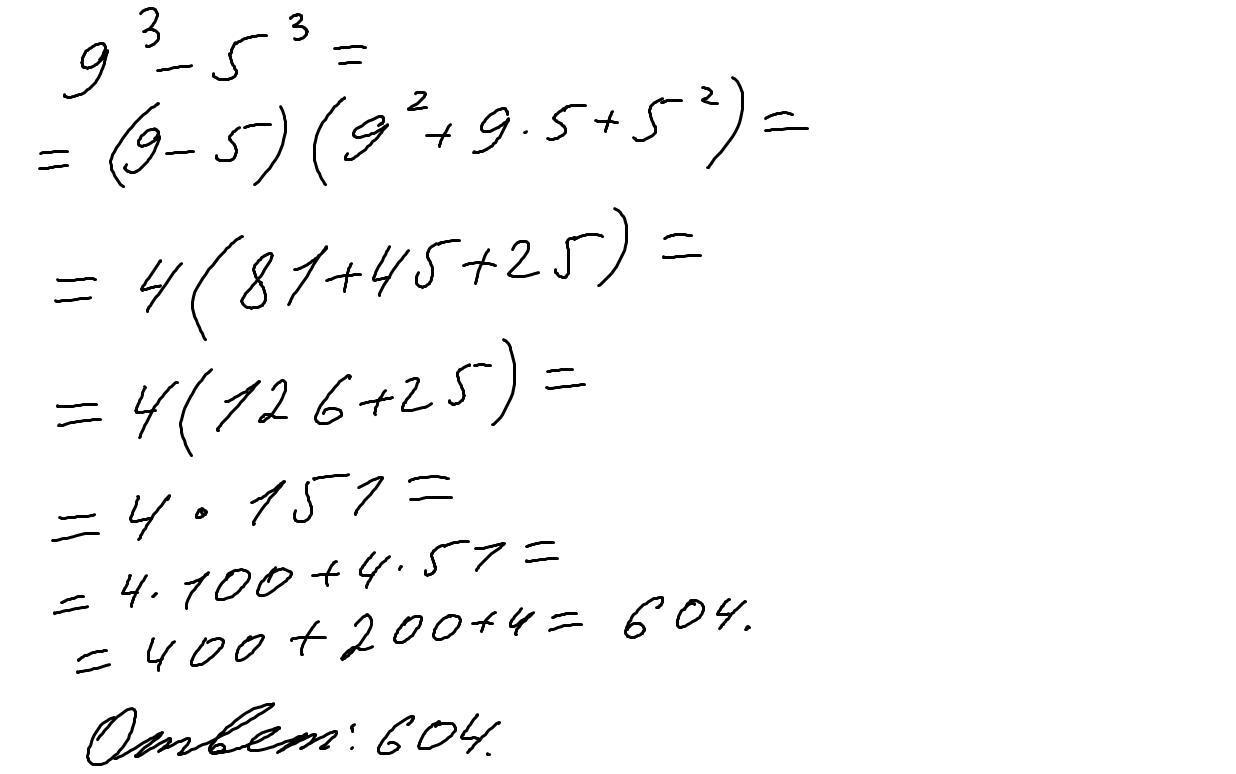 9³ - 5³ =
= (9 - 5)(9² + 9·5 + 5²) =
= 4(81 + 45 + 25) =
= 4(126 + 25) =
= 4 · 151 =
= 4·100 + 4·51 =
= 400 + 200 + 4 = 604.
Ответ: 604.